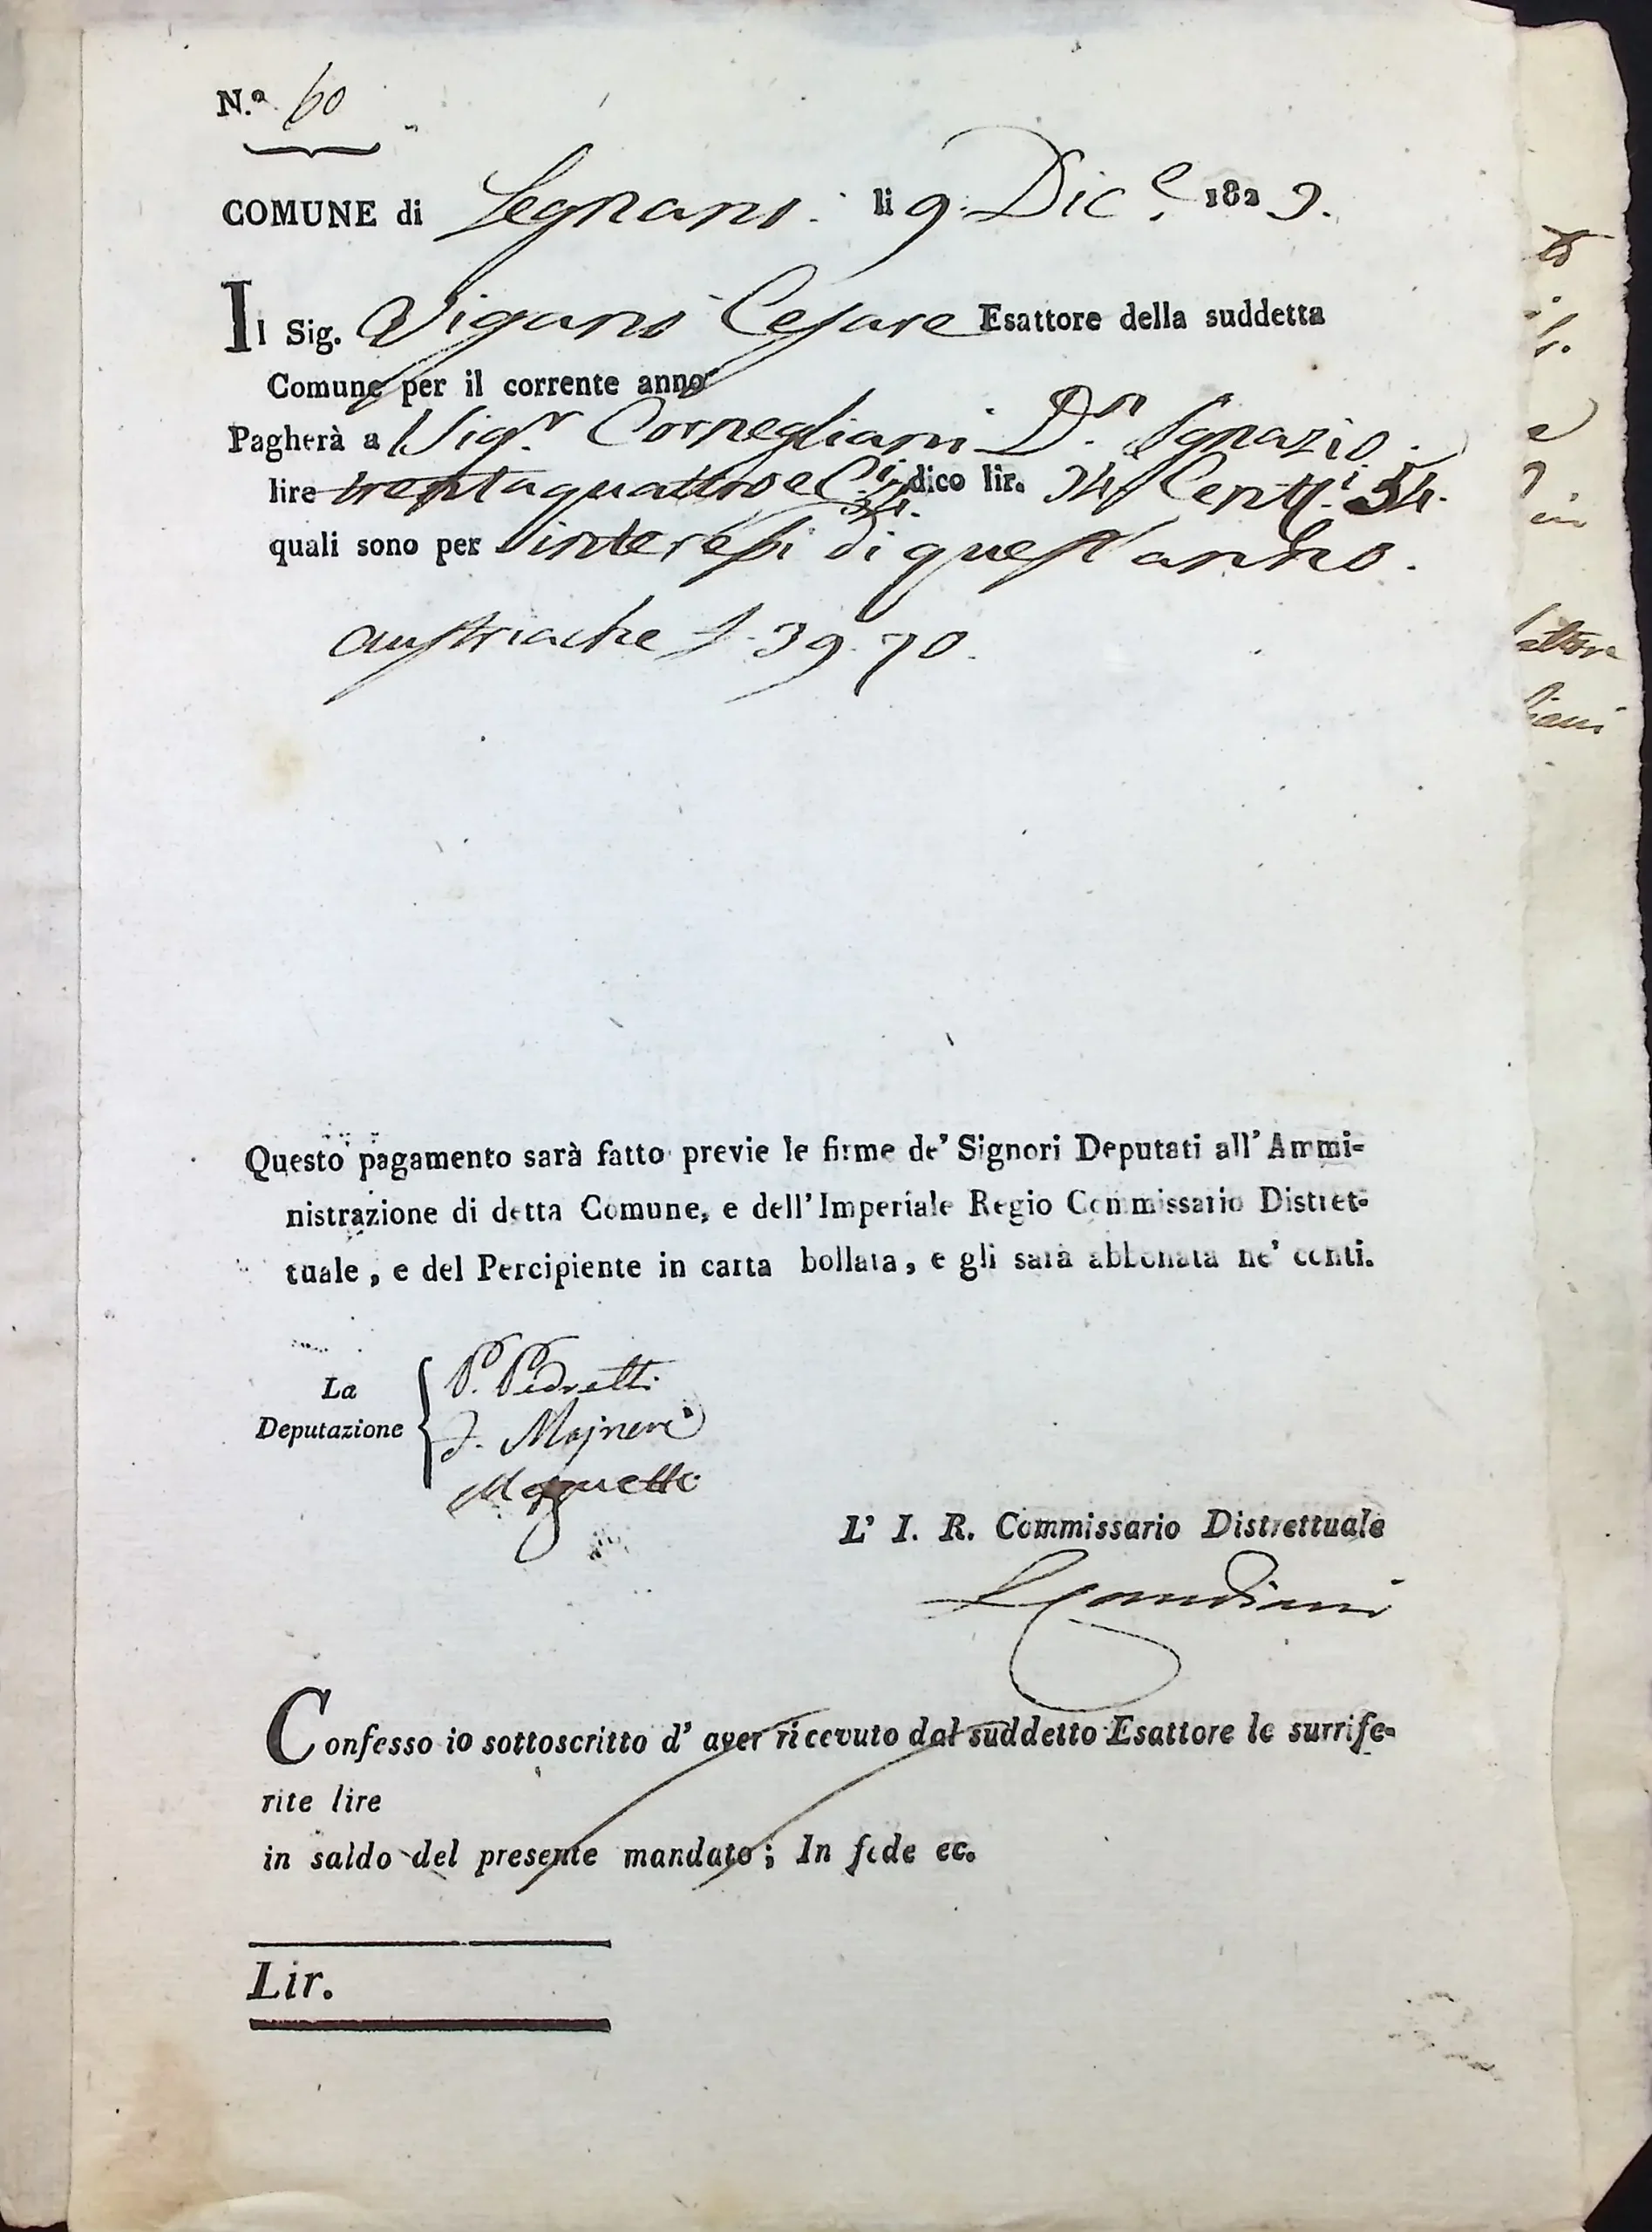 N.º 60
COMUNE di Legnano. li 9. Dic.e 1823.
Il Sig. Viganò Cesare Esattore della suddetta
Comune per il corrente anno
Pagherà al Sig.r Cornegliani D.n Ignazio.
lire trentaquattro e C.i 54. dico lir. 34 Cent.i 54.
quali sono per interessi di quest'anno.
austriache L. 39.70.
Questo pagamento sarà fatto previe le firme de' Signori Deputati all' Ammi-
nistrazione di detta Comune, e dell' Imperiale Regio Commissario Distret-
tuale, e del Percipiente in carta bollata, e gli sarà abbonata ne' conti.
La
Deputazione
P. Pedretti
Majneri
L' I. R. Commissario Distrettuale
Confesso io sottoscritto d' aver ricevuto dal suddetto Esattore le surrife-
rite lire
in saldo del presente mandato; In fede ec.
Lir.